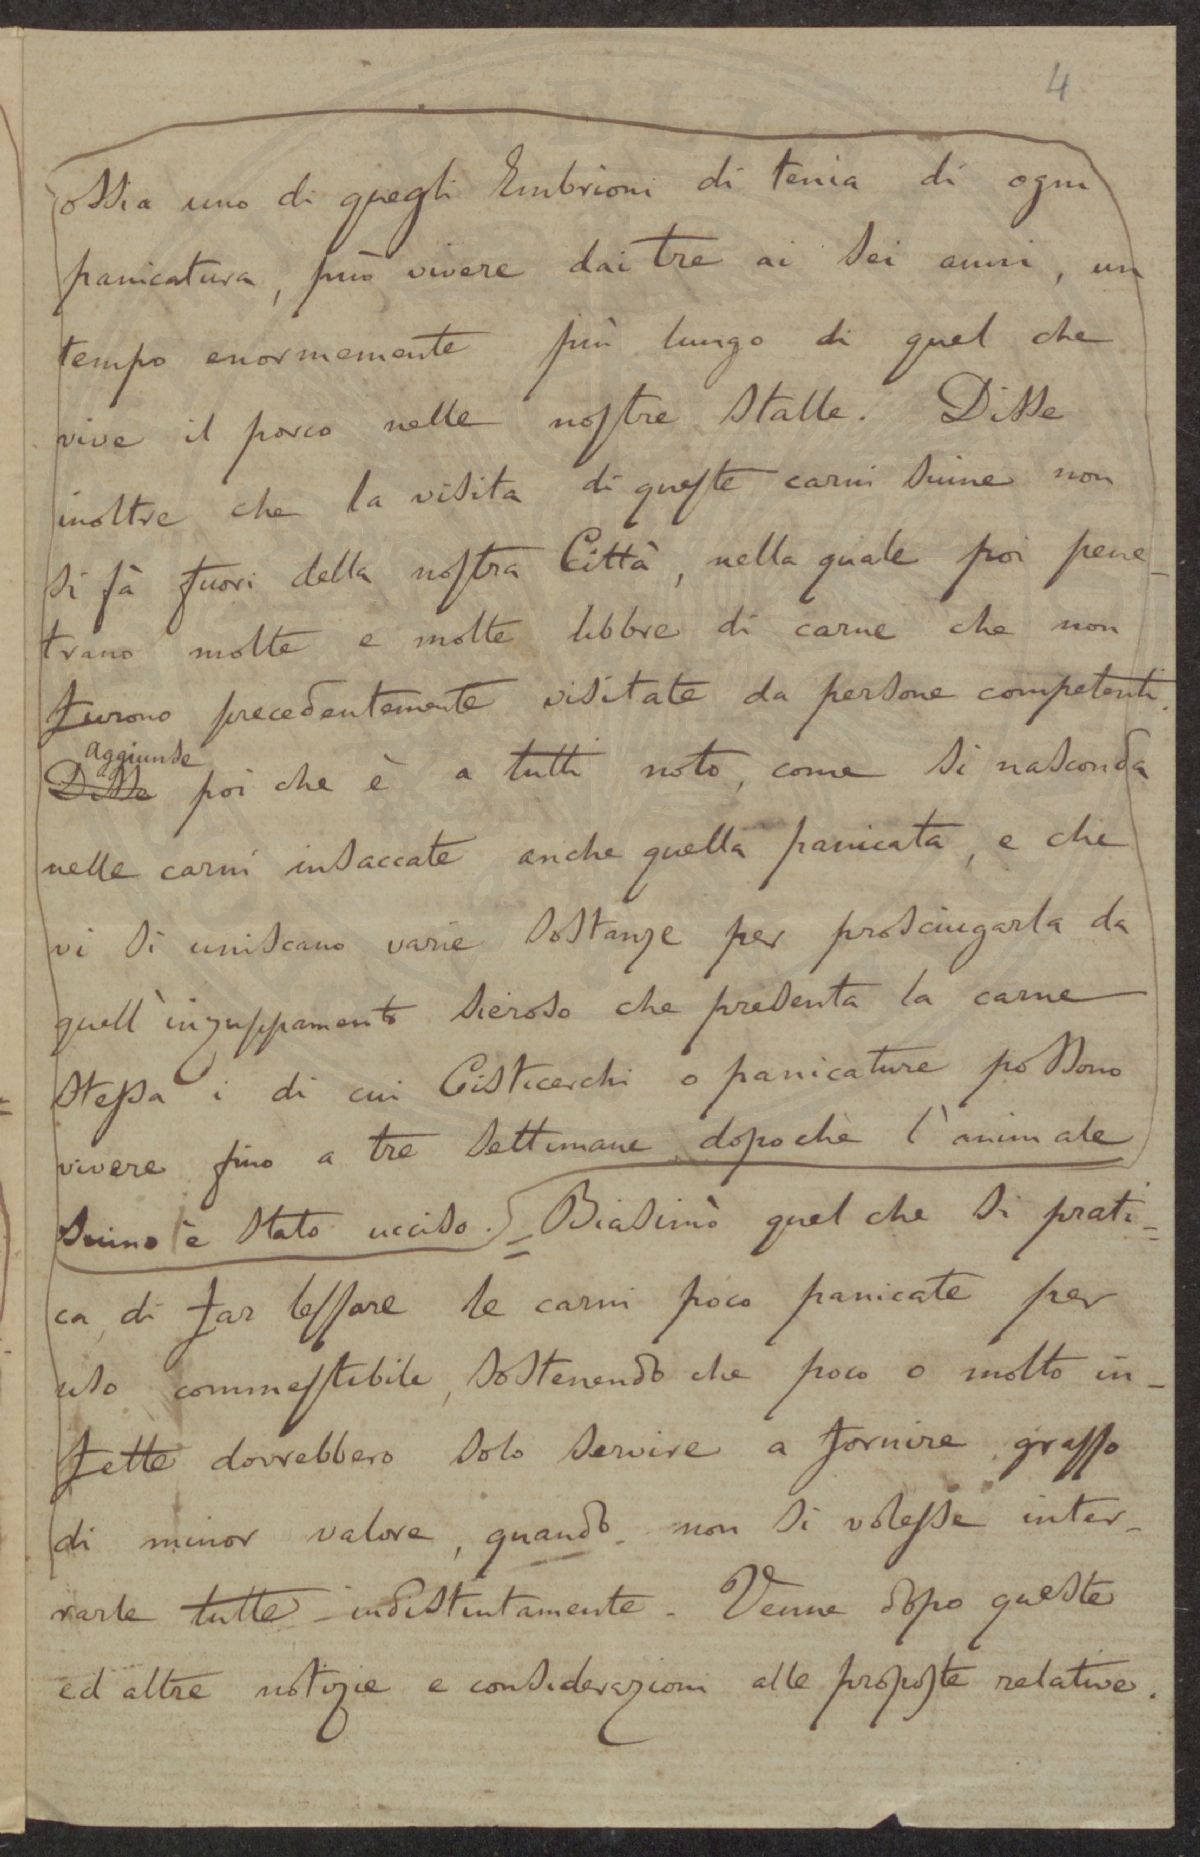 4
ossia uno di quegli Embrioni di tenia di ogni
panicatura, può vivere dai tre ai sei anni, un
tempo enormemente più lungo di quel che
vive il porco nelle nostre stalle. Disse
inoltre che la visita di queste carni suine non
si fà fuori della nostra Città, nella quale poi pene-
trano molte e molte libbre di carne che non
furono precedentemente visitate da persone competenti.
aggiunse
Disse poi che è a tutti noto, come si nasconda
nelle carni insaccate anche quella panicata, e che
vi si uniscano varie sostanze per prosciugarla da
quell'inzuppamento sieroso che presenta la carne
stessa i di cui Cisticerchi o panicature possono
vivere fino a tre settimane dopochè l'animale
suino è stato ucciso. = Biasimò quel che si prati=
ca, di far lessare le carni poco panicate per
uso commestibile, sostenendo che poco o molto in-
fette dovrebbero solo servire a fornire grasso
di minor valore, quando non si volesse inter-
rarle tutte indistintamente. Venne dopo queste
ed altre notizie e considerazioni alle proposte relative.